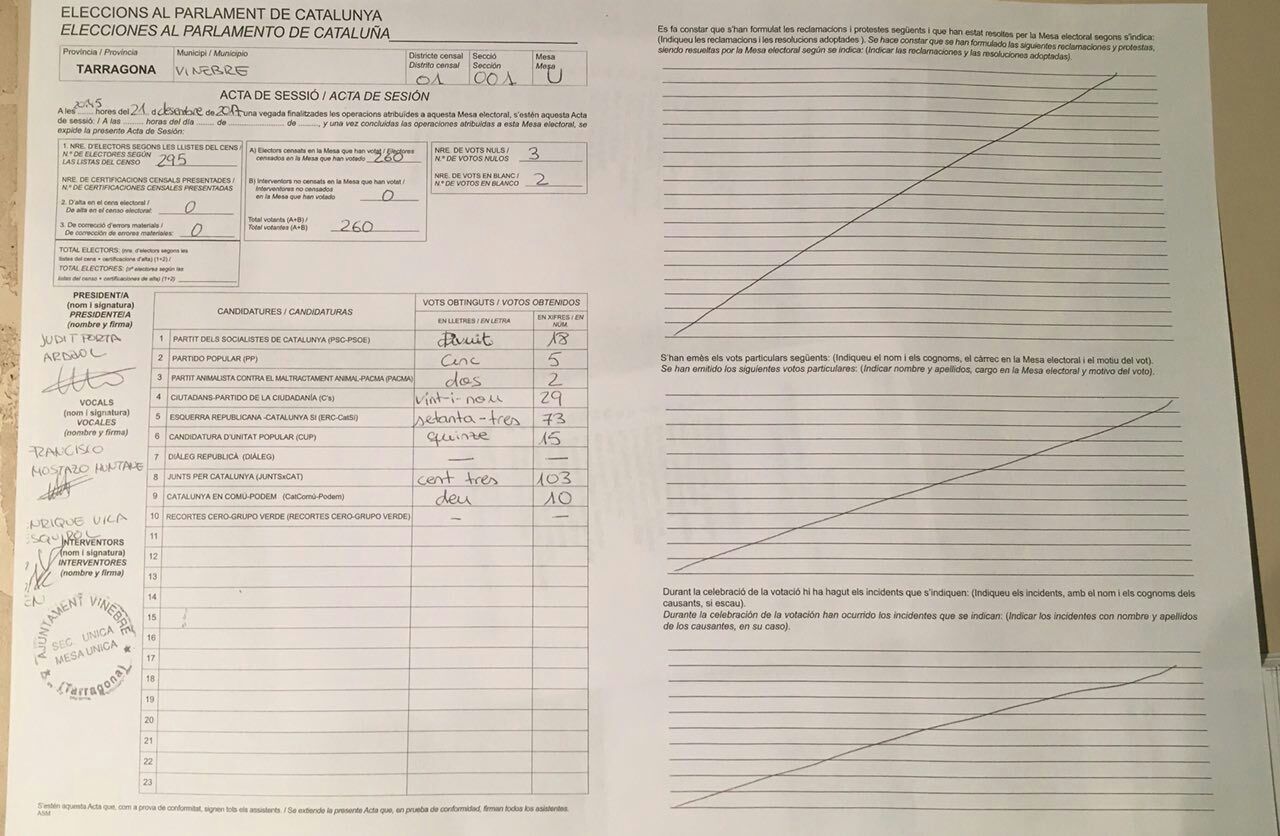 ELECCIONS AL PARLAMENT DE CATALUNYA
ELECCIONES AL PARLAMENTO DE CATALUÑA
Província / Provincia
TARRAGONA
Municipi / Municipio
VINEBRE
Districte censal
Distrito censal
01
Secció
Sección
001
Mesa
Mesa
U
ACTA DE SESSIÓ / ACTA DE SESIÓN
A les 20:45 hores del 21 d desembre de 2017 una vegada finalitzades les operacions atribuïdes a aquesta Mesa electoral, s'estén aquesta Acta
de sessió: / A las ......... horas del día ......... de ............ de ........., y una vez concluidas las operaciones atribuidas a esta Mesa electoral, se
expide la presente Acta de Sesión:
1. NRE. D'ELECTORS SEGONS LES LLISTES DEL CENS /
N.º DE ELECTORES SEGÚN
LAS LISTAS DEL CENSO 295
NRE. DE CERTIFICACIONS CENSALS PRESENTADES /
N.º DE CERTIFICACIONES CENSALES PRESENTADAS
2. D'alta en el cens electoral /
De alta en el censo electoral: 0
3. De correcció d'errors materials /
De corrección de errores materiales: 0
TOTAL ELECTORS: (nre. d'electors segons les
llistes del cens + certificacions d'alta) (1+2) /
TOTAL ELECTORES: (nº electores según las
listas del censo + certificaciones de alta) (1+2)
A) Electors censats en la Mesa que han votat / Electores
censados en la Mesa que han votado 260
B) Interventors no censats en la Mesa que han votat /
Interventores no censados
en la Mesa que han votado 0
Total votants (A+B) /
Total votantes (A+B) 260
NRE. DE VOTS NULS /
N.º DE VOTOS NULOS 3
NRE. DE VOTS EN BLANC /
N.º DE VOTOS EN BLANCO 2
PRESIDENT/A
(nom i signatura)
PRESIDENTE/A
(nombre y firma)
JUDIT PORTA
VOCALS
(nom i signatura)
VOCALES
(nombre y firma)
FRANCISCO
MOSTAZO MUNTANE
ENRIQUE VILA
ESQUIROL
INTERVENTORS
(nom i signatura)
INTERVENTORES
(nombre y firma)
AJUNTAMENT VINEBRE
SEC. UNICA
MESA UNICA
(Tarragona)
CANDIDATURES / CANDIDATURAS
VOTS OBTINGUTS / VOTOS OBTENIDOS
EN LLETRES / EN LETRA
EN XIFRES / EN NÚM.
1 PARTIT DELS SOCIALISTES DE CATALUNYA (PSC-PSOE) Divuit 18
2 PARTIDO POPULAR (PP) Cinc 5
3 PARTIT ANIMALISTA CONTRA EL MALTRACTAMENT ANIMAL-PACMA (PACMA) dos 2
4 CIUTADANS-PARTIDO DE LA CIUDADANÍA (C's) vint-i-nou 29
5 ESQUERRA REPUBLICANA -CATALUNYA SÍ (ERC-CatSí) setanta-tres 73
6 CANDIDATURA D'UNITAT POPULAR (CUP) quinze 15
7 DIÀLEG REPUBLICÀ (DIÀLEG) — —
8 JUNTS PER CATALUNYA (JUNTSxCAT) cent tres 103
9 CATALUNYA EN COMÚ-PODEM (CatComú-Podem) deu 10
10 RECORTES CERO-GRUPO VERDE (RECORTES CERO-GRUPO VERDE) — —
11
12
13
14
15
16
17
18
19
20
21
22
23
S'estén aquesta Acta que, com a prova de conformitat, signen tots els assistents. / Se extiende la presente Acta que, en prueba de conformidad, firman todos los asistentes.
Es fa constar que s'han formulat les reclamacions i protestes següents i que han estat resoltes per la Mesa electoral segons s'indica:
(Indiqueu les reclamacions i les resolucions adoptades ). Se hace constar que se han formulado las siguientes reclamaciones y protestas,
siendo resueltas por la Mesa electoral según se indica: (Indicar las reclamaciones y las resoluciones adoptadas).
S'han emès els vots particulars següents: (Indiqueu el nom i els cognoms, el càrrec en la Mesa electoral i el motiu del vot).
Se han emitido los siguientes votos particulares: (Indicar nombre y apellidos, cargo en la Mesa electoral y motivo del voto).
Durant la celebració de la votació hi ha hagut els incidents que s'indiquen: (Indiqueu els incidents, amb el nom i els cognoms dels
causants, si escau).
Durante la celebración de la votación han ocurrido los incidentes que se indican: (Indicar los incidentes con nombre y apellidos
de los causantes, en su caso).